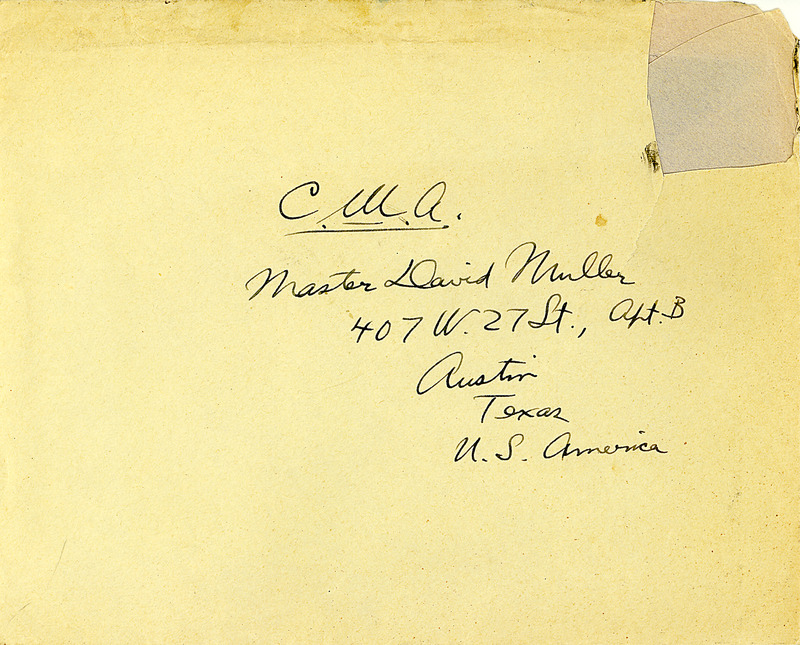 C. Ш. А.
Master David Muller
407 W. 27 St., Apt. B
Austin
Texas
U. S. America